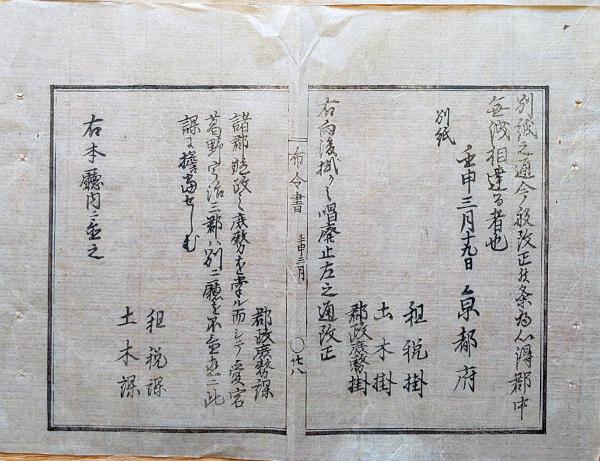 別紙之通今般改正候条為心得郡中
無洩相達る者也
壬申三月十九日 京都府
別紙
租税掛
土木掛
郡政庶務掛
右向後掛々之唱廃止左之通改正
布令書 壬申三月 〇廿八
郡政庶務課
諸郡政之庶務を掌ル而シテ愛宕
葛野宇治三郡ハ別ニ廳を不置恋ニ此
課に擔当せしむ
租税課
土木課
右本廳内ニ置之